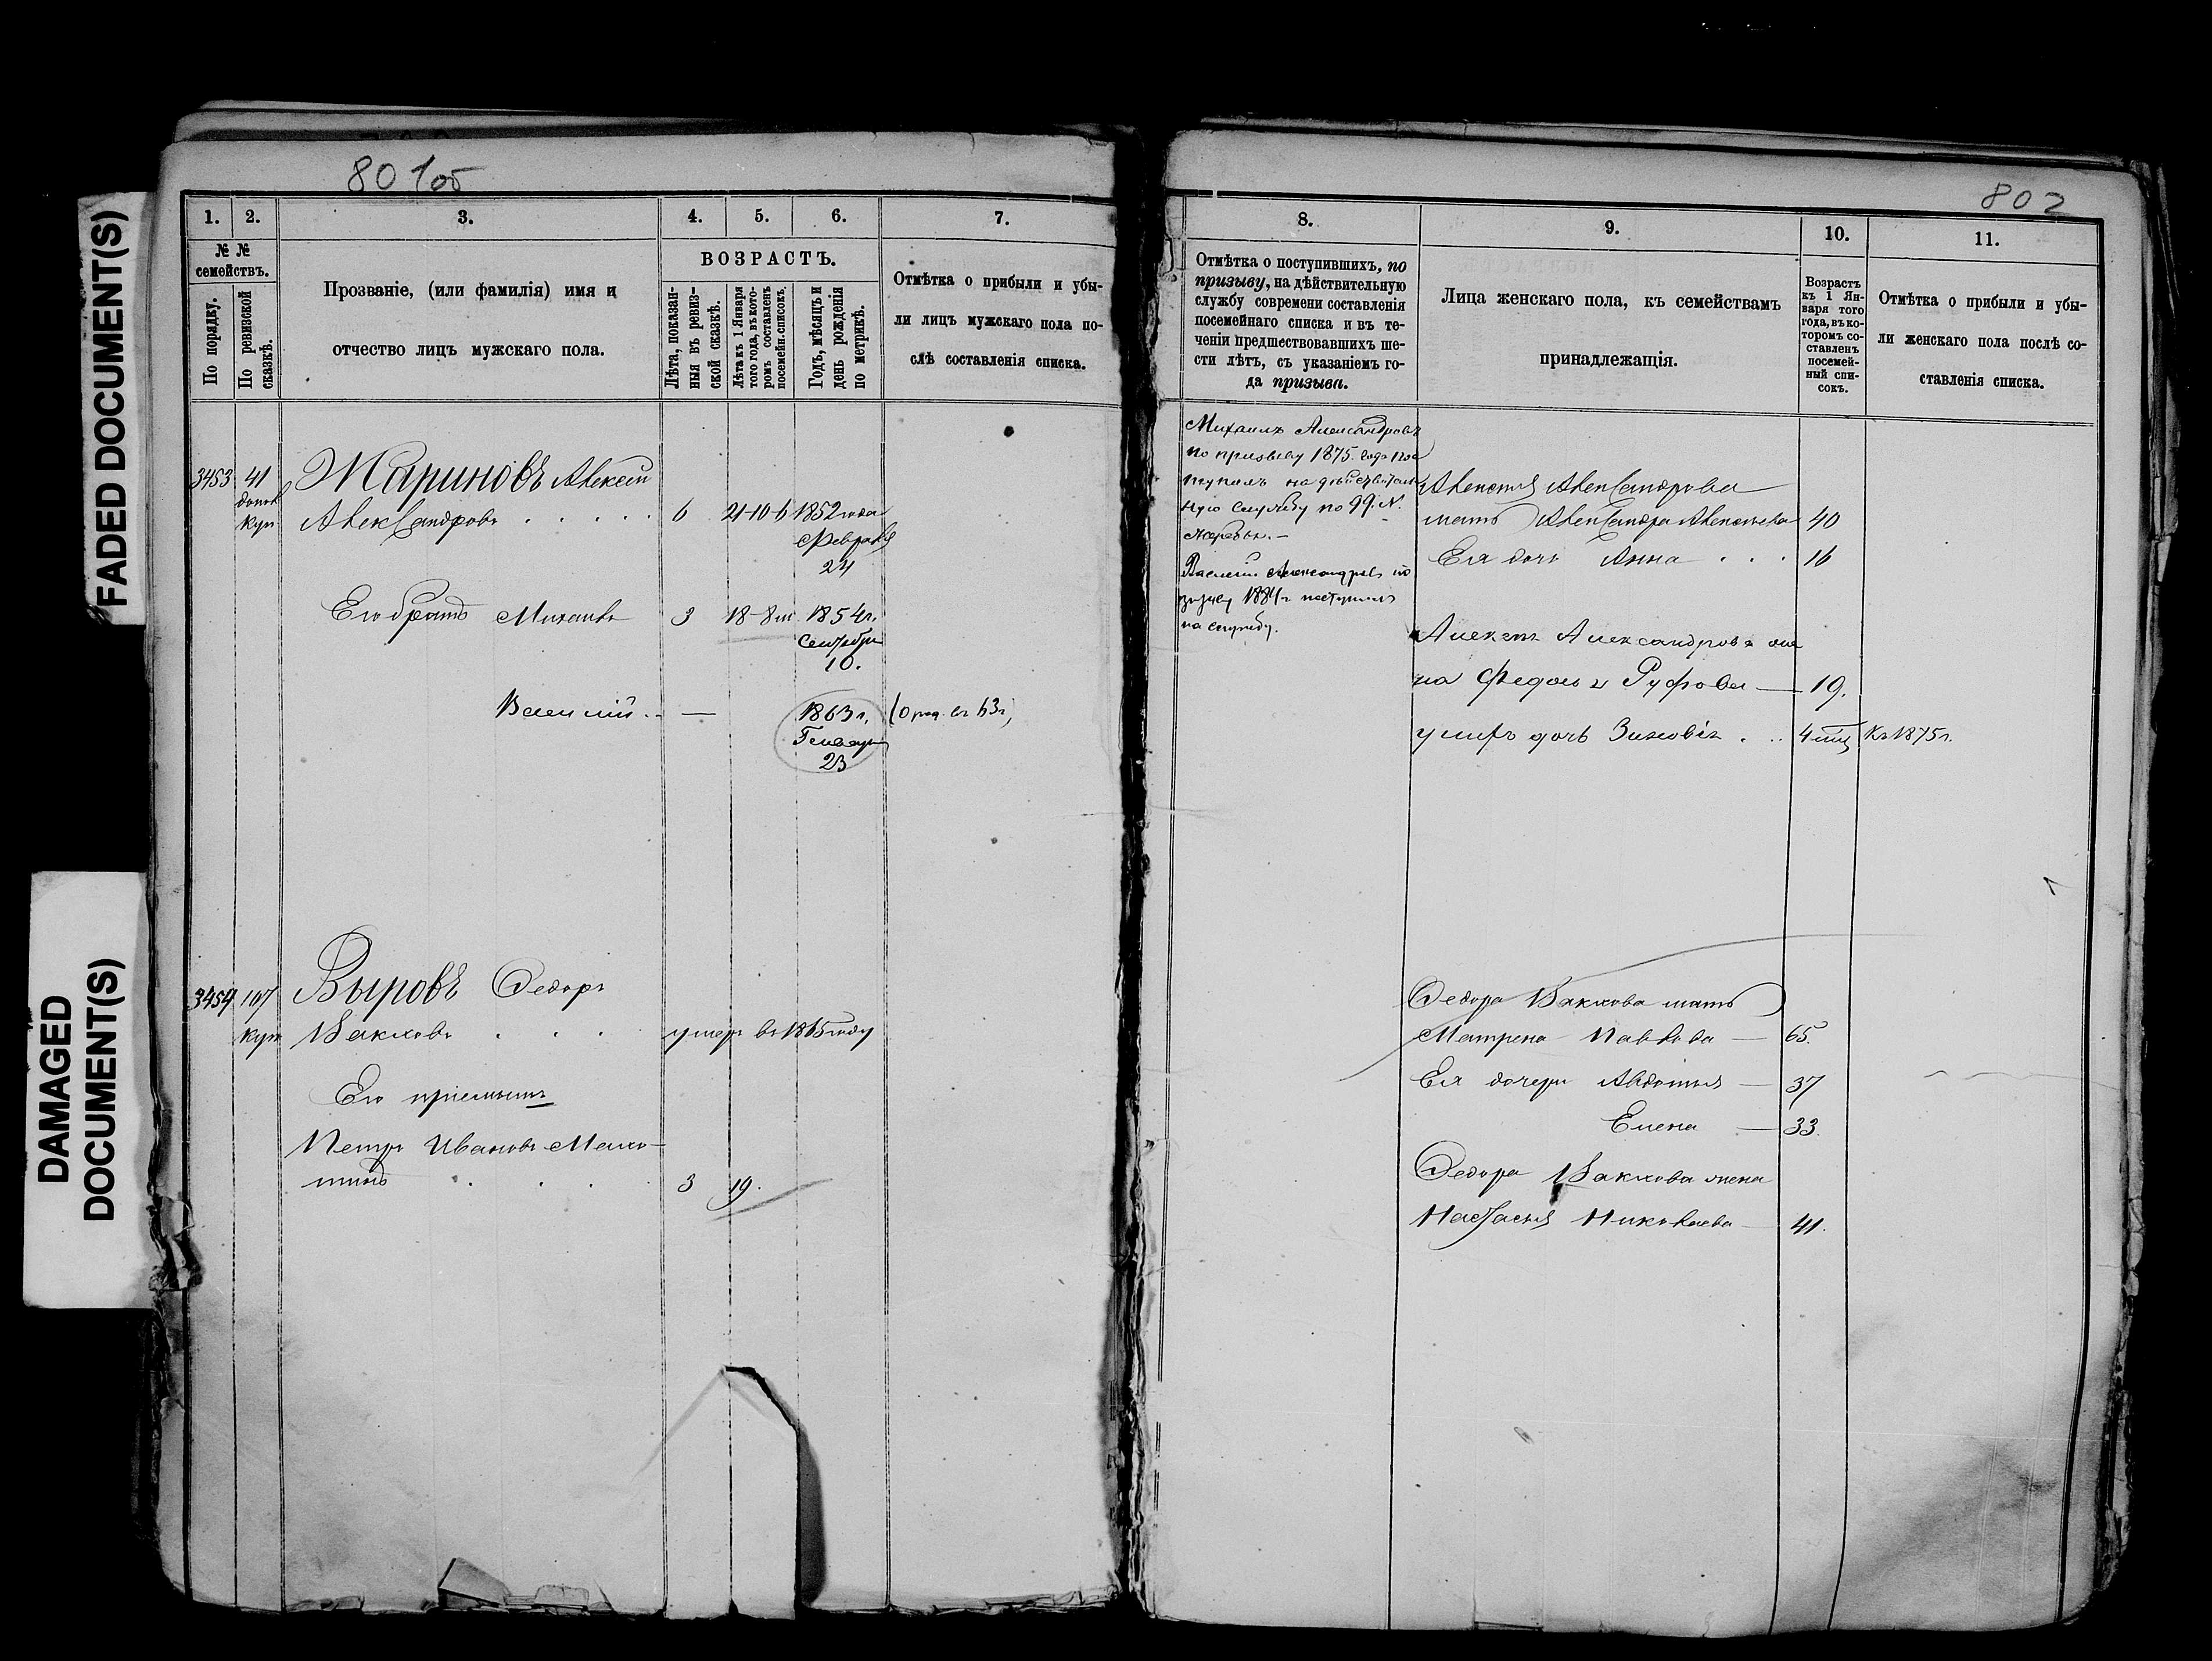 FADED DOCUMENT(S)
DAMAGED
DOCUMENT(S)
801об
1. 2. 3. 4. 5. 6. 7.
№ №
семействъ.
По порядку.
По ревизской
сказкѣ.
Прозваніе, (или фамилія) имя и
отчество лицъ мужскаго пола.
ВОЗРАСТЪ.
Лѣта, показан-
ныя въ ревиз-
ской сказкѣ.
Лѣта къ 1 Января
того года, въ кото-
ромъ составленъ
посемейн. списокъ.
Годъ, мѣсяцъ и
день рожденія
по метрикѣ.
Отмѣтка о прибыли и убы-
ли лицъ мужскаго пола по-
слѣ составленія списка.
3453 41 Жариновъ Алексѣй
допол
куп Александровъ 6 21-10-6 1852 года
Февраля
24
Его братъ Михаилъ 3 18-8 1854г.
Сентября
10.
Василій — 1863г. (о род. въ 63г)
Генваря
23
3454 107 Выровъ Федоръ
куп Вакховъ умеръ въ 1865 году
Его пріемышъ
Петръ Ивановъ
3 19.
802
8. 9. 10. 11.
Отмѣтка о поступившихъ, по
призыву, на дѣйствительную
службу современи составленія
посемейнаго списка и въ те-
ченіи предшествовавшихъ ше-
сти лѣтъ, съ указаніемъ го-
да призыва.
Лица женскаго пола, къ семействамъ
принадлежащія.
Возрастъ
къ 1 Ян-
варя того
года, въ ко-
торомъ со-
ставленъ
посемей-
ный спи-
сокъ.
Отмѣтка о прибыли и убы-
ли женскаго пола послѣ со-
ставленія списка.
Михаилъ Александровъ
по призыву 1875 года пос
тупилъ на дѣйствитель
ную службу по 99 №
жеребья.—
Василій Александровъ по
призыву 1884г поступилъ
на службу.
Алексѣя Александрова
мать Александра Алексѣева 40
Ея дочь Анна 16
Алексѣя Александрова же
на Федосья Руфова — 19.
умерш дочь Зиновія 4 мѣс Къ 1875г.
Федора Вакхова мать
Матрена Павлова — 65.
Ея дочери Авдотья — 37
Елена — 33.
Федора Вакхова жена
Настасья Николаева — 41.